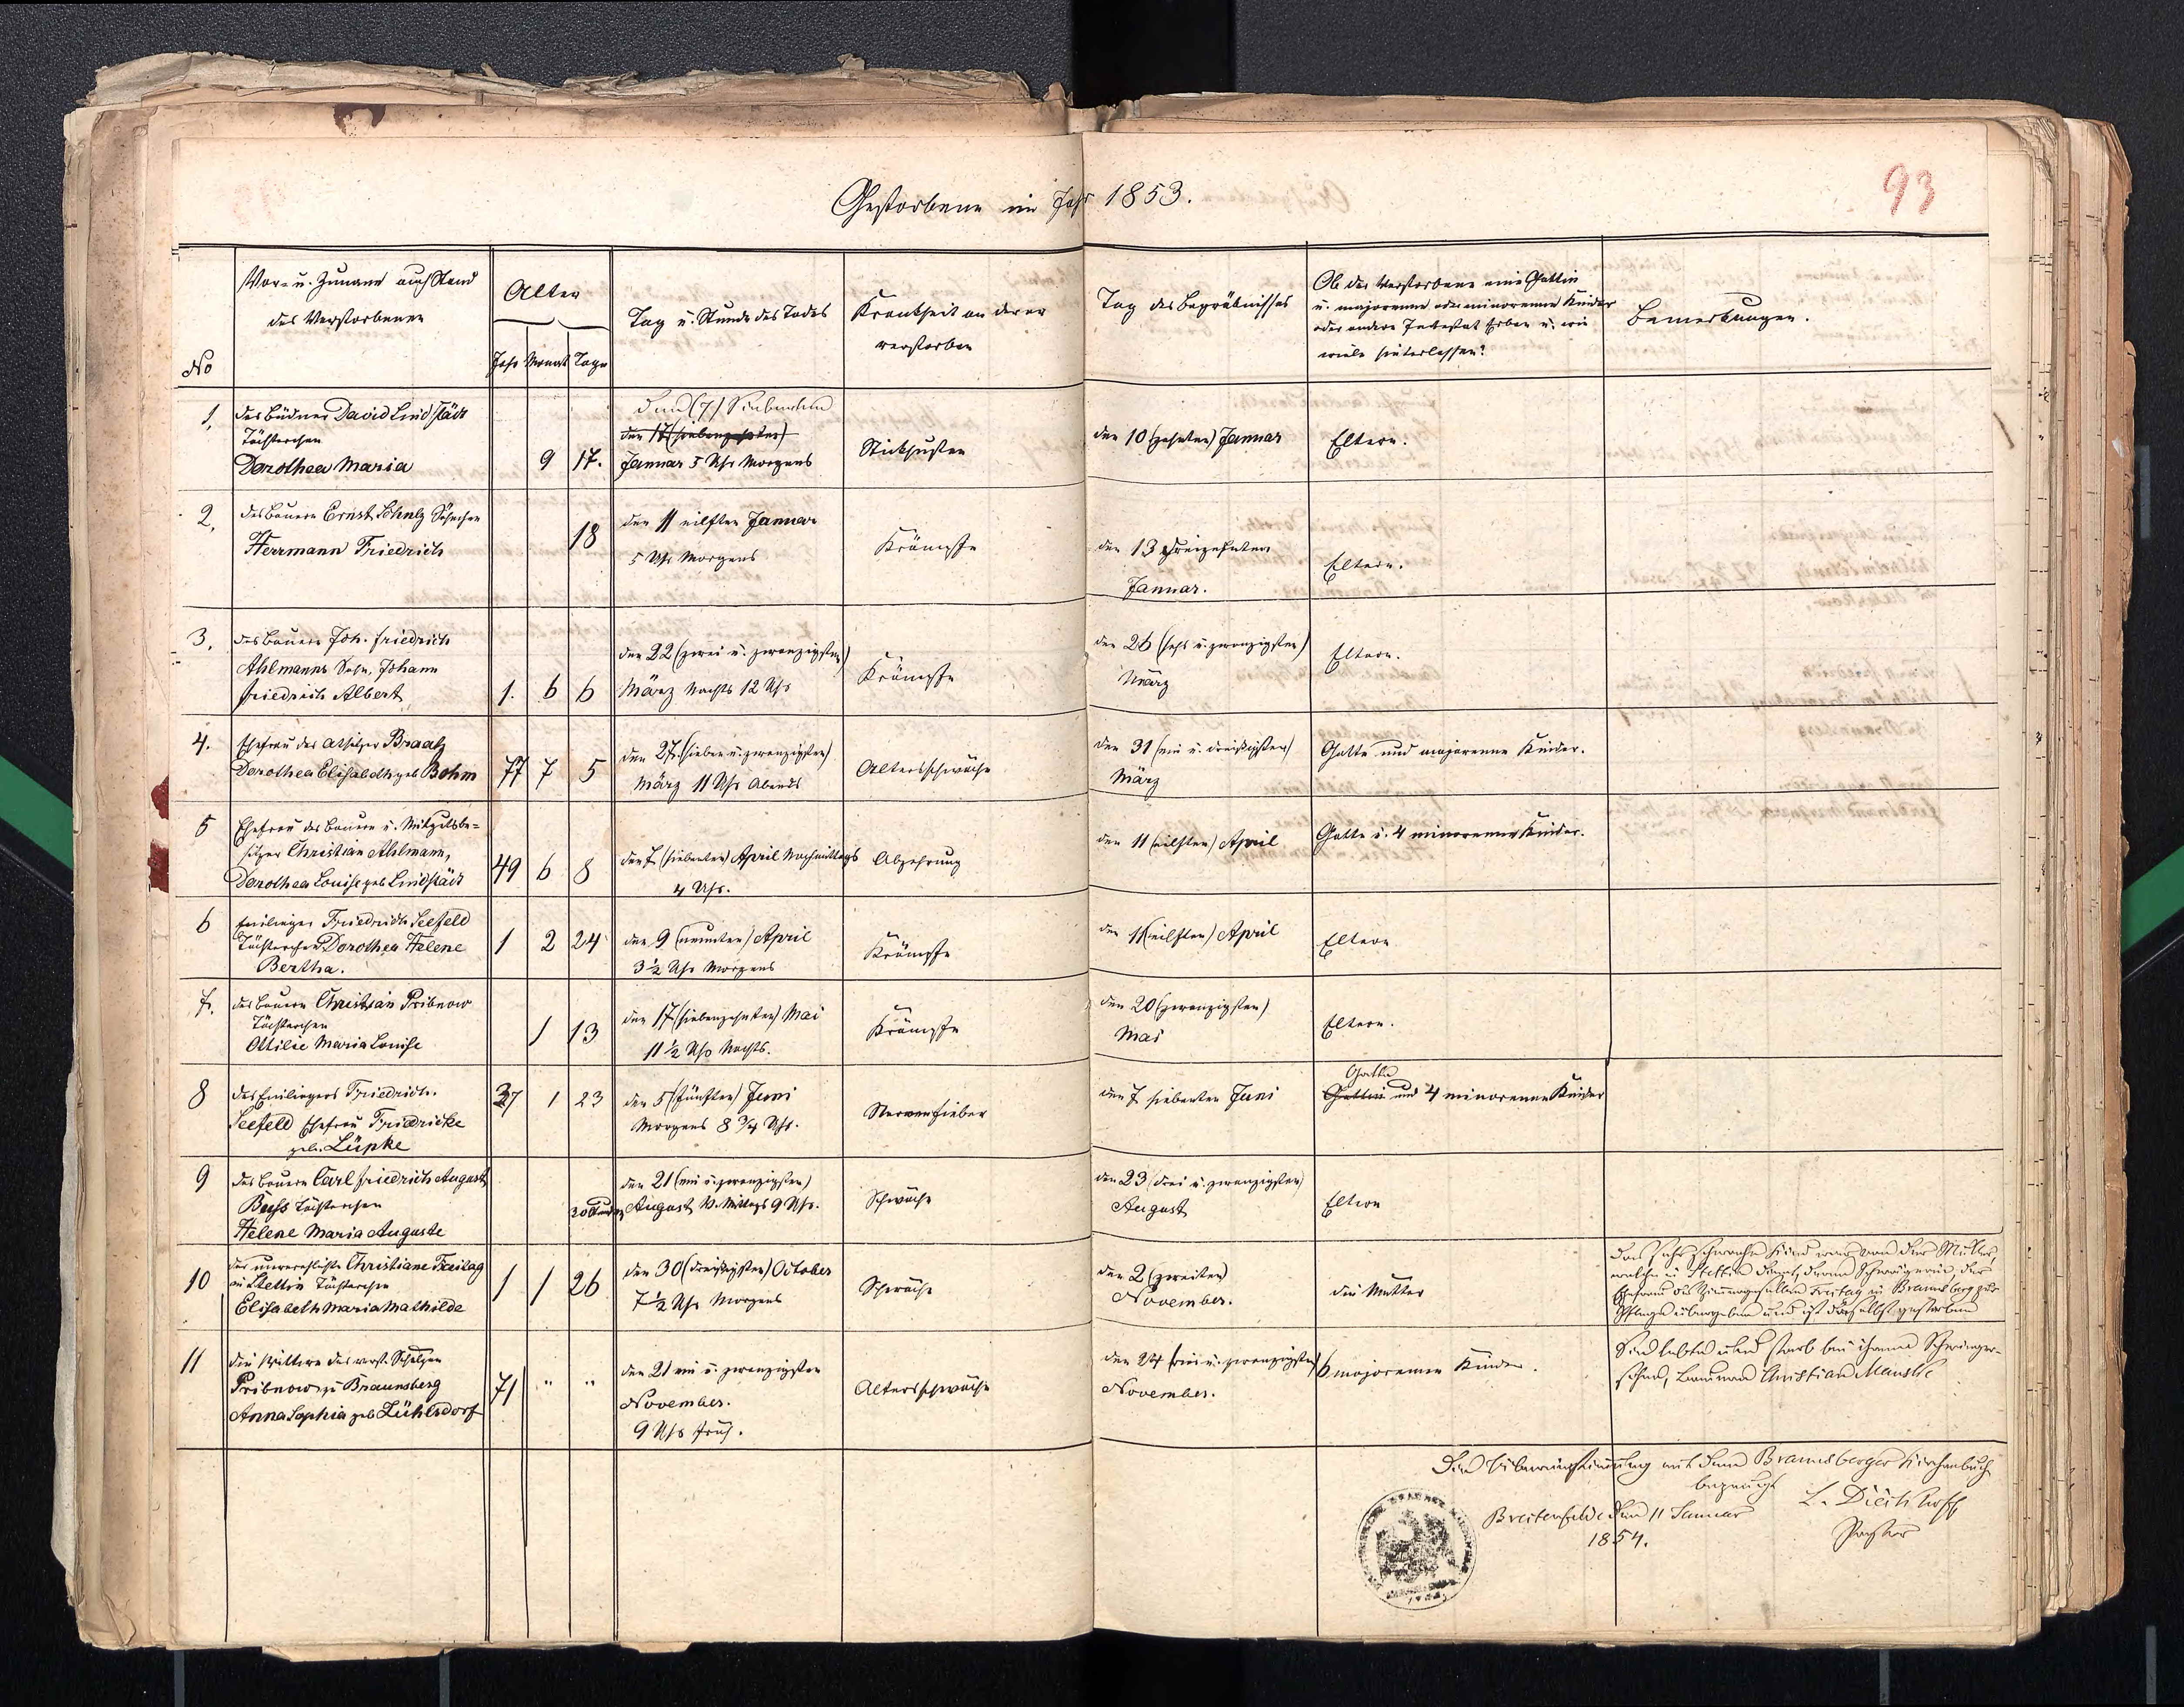 93
Gestorbene im Jahr 1853.
No
Vor- u. Zuname auch Stand
des Verstorbenen
Alter
Jahr Monat Tage
Tag u. Stunde des Todes
Krankheit an der er
verstorben
Tag des Begräbnisses
Ob der Verstorbene eine Gattin
u. majorenne oder minorenne Kinder
oder andere Intestat Erben u. wie
viele hinterlassen?
Bemerkungen.
1.
des Büdner David Lindstädt
Töchterchen
Dorothea Maria
9 17.
den (7) Siebenten
den 17 (siebenzehnten)
Januar 5 Uhr Morgens
Stickhusten
den 10 (zehnten) Januar
Eltern.
2.
des Bauern Ernst Schulz Söhnchen
Herrmann Friedrich
18
den 11 eilften Januar
5 Uhr Morgens
Krämpfe
den 13 dreizehnten
Januar.
Eltern.
3.
des Bauern Joh. Friedrich
Ahlmanns Sohn, Johann
Friedrich Albert
1. 6 6
den 22 (zwei u. zwanzigsten)
März Nachts 12 Uhr
Krämpfe
den 26 (sechs u. zwanzigsten)
März
Eltern.
4.
Ehefrau des Altsitzer Braatz
Dorothea Elisabeth geb Bohm
77 7 5
den 27. (sieben u. zwanzigsten)
März 11 Uhr Abends
Altersschwäche
den 31 (ein u. dreißigsten)
März
Gatte und majorenne Kinder.
5
Ehefrau des Bauern u. Mitgutsbe-
sitzer Christian Ahlmann,
Dorothea Louise geb Lindstädt
49 6 8
den 7. (siebenten) April Nachmittags
4 Uhr.
Abzehrung
den 11 (eilften) April
Gatte u. 4 minorenne Kinder.
6
Einlieger Friedrich Seefeld
Töchterchen Dorothea Helene
Bertha.
1 2 24
den 9 (neunten) April
3 1/2 Uhr Morgens
Krämpfe
den 11 (eilften) April
Eltern
7.
des Bauern Christian Pribnow
Töchterchen
Ottilie Maria Louise
1 13
den 17 (siebenzehnten) Mai
11 1/2 Uhr Nachts.
Krämpfe
den 20 (zwanzigsten)
Mai
Eltern.
8
des Einliegers Friedrich
Seefeld Ehefrau Friedricke
geb. Lüpke
37 1 23
den 5 (fünften) Juni
Morgens 8 3/4 Uhr.
Nervenfieber
den 7 siebenten Juni
Gatte
Gattin und 4 minorenne Kinder
9
des Bauern Carl Friedrich August
Töchterchen
Helene Maria Auguste
30 Stunden
den 21 (ein u. zwanzigsten)
August V. Mittags 9 Uhr.
Schwäche
den 23 (drei u. zwanzigsten)
August
Eltern
10
der unverehlichte Christiane Freitag
in Stettin Töchterchen
Elisabeth Maria Mathilde
1 1 26
den 30 (dreißigsten) October
7 1/2 Uhr Morgens
Schwäche
den 2 (zweiten)
November.
die Mutter
Das sehr schwache Kind war von der Mutter,
welche in Stettin dient, deren Schwägerin, der
Ehefrau des Zimmergesellen Freitag in Braunsberg zur
Pflege übergeben und ist daselbst gestorben
11
die Wittwe des verst. Schulzen
Pribnow zu Braunsberg
Anna Sophia geb Zühlsdorf
71 " "
den 21 ein u. zwanzigsten
November.
9 Uhr früh.
Altersschwäche
den 24 (vier u. zwanzigsten)
November.
6 majorenne Kinder.
Sie lebte und starb bei ihrem Schwieger-
sohne, Bauern Christian Manske
Die Uebereinstimmung mit dem Braunsberger Kirchenbuch
bezeugt
Breitenfelde den 11 Januar
1854.
L. Dieckhoff
Pastor